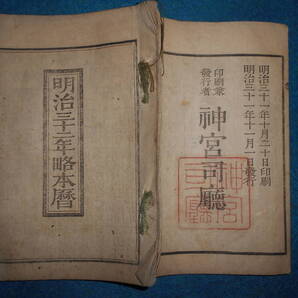 明治三十一年十月二十日印刷
明治三十一年十一月一日發行
印刷兼
發行者
神宮司廳
明治三十二年略本暦